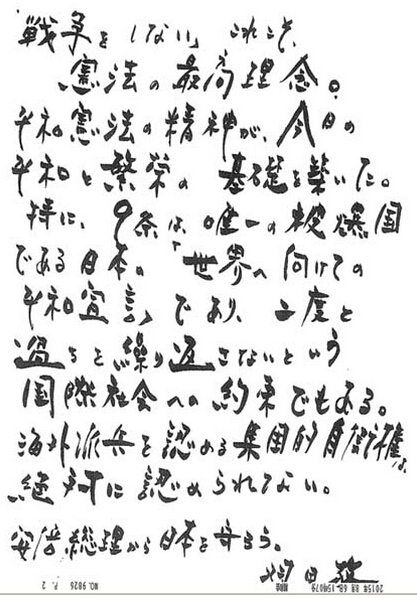 「戦争をしない」これこそ、
憲法の最高理念。
平和憲法の精神が、今日の
平和と繁栄の 基礎を築いた。
特に、9条は、唯一の被爆国
である日本の 世界へ向けての
平和宣言」であり、二度と
過ちを繰り返さないという
国際社会への約束でもある。
海外派兵を認める集団的自衛権は、
絶対に認められない。
安倍総理から日本を守ろう。
NO. 9826 P. 2